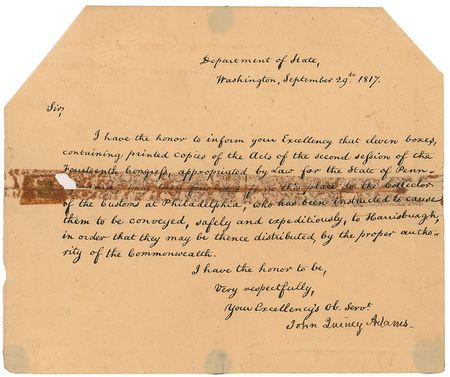 Department of State,
Washington, September 29th 1817.
Sir,
I have the honor to inform your Excellency that eleven boxes,
containing printed copies of the Acts of the second session of the
Fourteenth Congress, appropriated by Law for the State of Penn-
this place to the Collector
of the Customs at Philadelphia, who has been instructed to cause
them to be conveyed, safely and expeditiously, to Harrisburgh,
in order that they may be thence distributed, by the proper autho-
rity of the Commonwealth.
I have the honor to be,
Very respectfully,
Your Excellency's Ob. Servt.
John Quincy Adams.